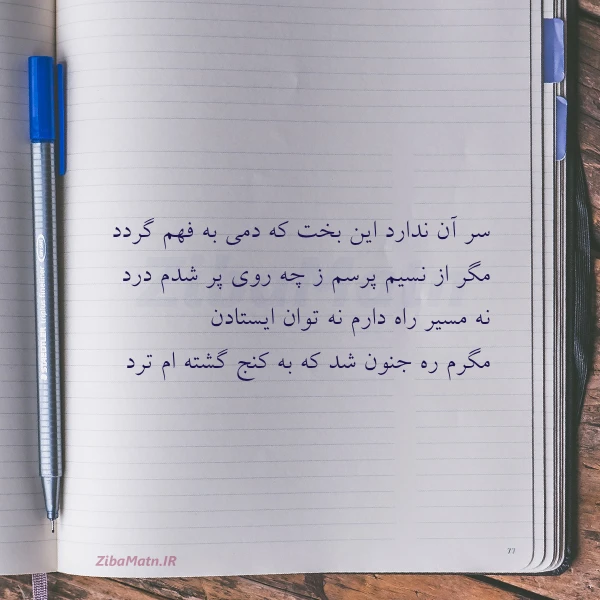 سر آن ندارد این بخت که دمی به فهم گردد
مگر از نسیم پرسم ز چه روی پر شدم درد
نه مسیر راه دارم نه توان ایستادن
مگرم ره جنون شد که به کنج گشته ام ترد
ZibaMatn.IR